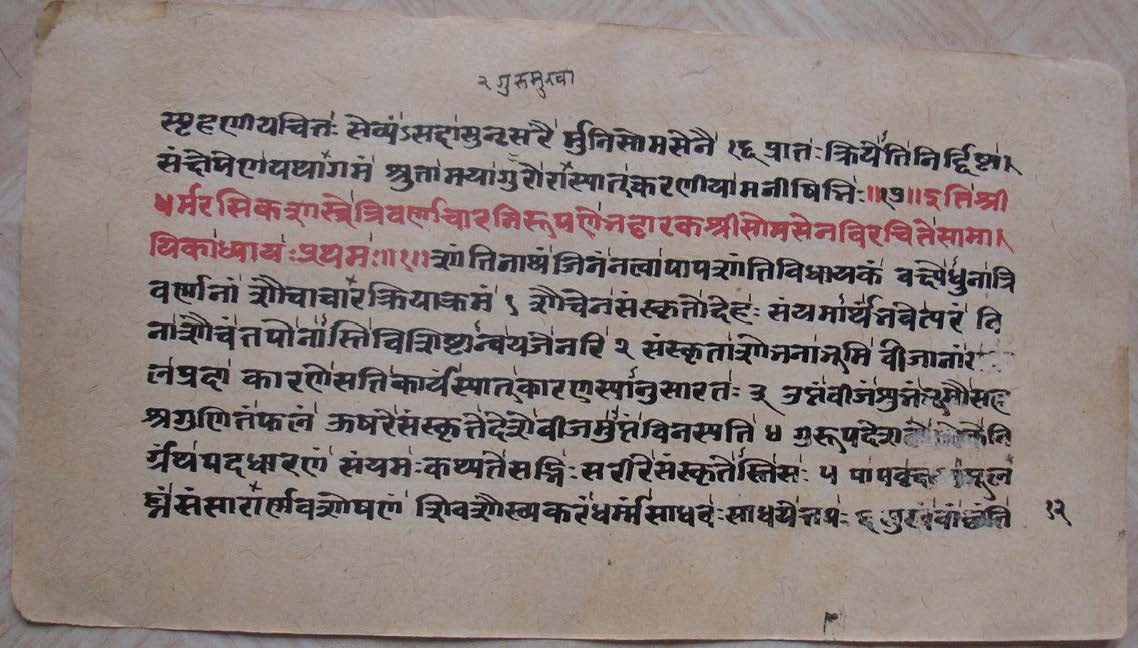 २ गुरुमुखा
स्पृहणीयचित्तः सेव्यं ऽसदा मुनि सोमसेनै १६ प्रातः क्रियेति निर्द्दिष्टा
संक्षेपेण यथागमं श्रुता मया गुरो रास्यात् करणीया मनीषिभिः ॥१७॥ इति श्री
धर्मरसिकशास्त्रे त्रिवर्णाचारनिरूपणे भट्टारकश्रीसोमसेनविरचिते सामा
यिकाध्यायः प्रथमः ॥१॥ शांतिनाथं जिनं नत्वा पापशांतिविधायकं वक्ष्येधुना त्रि
वर्णनां शौचाचारक्रियाक्रमं १ शौचेन संस्कृतो देहः संयमार्थं भवेत्परं वि
ना शौचं तपो नास्ति विशिष्टान्वयजैनरि २ संस्कृता शोभना भूमि बीजानां
लप्रदा कारणे सति कार्यं स्यात् कारणस्यानुसारतः ३ उप्तं बीजं भूमौ सह
श्रगुणितं फलं ऊषरे संस्कृते देशे बीजमुप्तं विनस्पति ४ गुरूपदेश
ग्रंथपदधारणं संयमः कथ्यते सद्भिः सरीरे संस्कृते स्तिसः ५ पापवृक्ष मूल
घ्नं संसारार्णवशोषणं शिवशौख्यकरं धर्म्मं साधवः साधयेत्तपः ६
१२